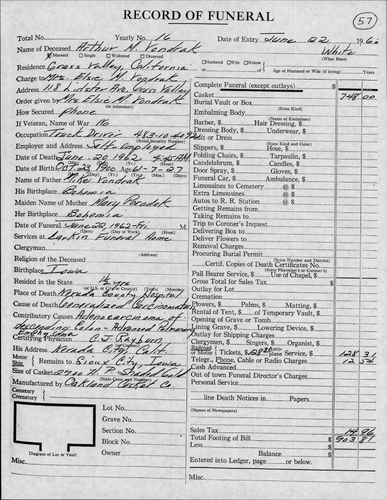 RECORD OF FUNERAL
57
Total No. Yearly No. 16 Date of Entry June 22 196
Name of Deceased Arthur M. Vondrak White
Married Single Widowed Divorced Husband Wife Widow (What Race)
Residence Grass Valley, California
Age of Husband or Wife (if living) Years
Charge to Mrs. Elsie M. Vondrak
Complete Funeral (except outlays) $
Address 118 Lidster Ave Grass Valley
Casket 748 00
Order given by Mrs Elsie M. Vondrak
Burial Vault or Box
(or Informant) (State Kind)
How Secured phone
Embalming Body
(Name of Embalmer)
If Veteran, Name of War no
Barber, $ Hair Dressing, $
Occupation Truck Driver 483-10-4092
Dressing Body, $ Underwear, $
(Social Security Number) (State Kind and Color)
Employer and Address Self-employed
Slippers, $ Hose, $
Date of Death June 20 1962 4:45 AM
Folding Chairs, $ Tarpaulin, $
Candelabrum, $ Candles, $
Date of Birth Oct. 23 1900 Age 61-7-27
Door Spray, $ Gloves, $
Name of Father Mike Vondrak
Funeral Car, $ Ambulance, $
His Birthplace Bohemia
Limousines to Cemetery @ $
Maiden Name of Mother Mary
Extra Limousines @ $
Autos to R. R. Station @ $
Her Birthplace Bohemia
Getting Remains from
Date of Funeral June 22, 1962-Fri. M.
Taking Remains to
Services at Larkin Funeral Home
Trip to Coroner's Inquest
Clergyman
Delivering Box to
(Address)
Deliver Flowers to
Religion of the Deceased
Removal Charges
Birthplace Iowa
Procuring Burial Permit
(State Number and District)
Resided in the State 1½ yrs
Certif. Copies of Death Certificates No.
(or U. S., or City or County) (Years) (Months)
Pall Bearer Service, $ Use of Chapel, $
Place of Death Nevada County Hospital
Gross Total for Sales Tax $
Cause of Death Generalized Carcinomatosis
Outlay for Lot
Cremation
Contributory Causes Adenocarcinoma of
Flowers, $ Palms, $ Matting, $
descending Colon - Advanced Pulmonary
Rental of Tent, $ of Temporary Vault, $
Opening of Grave or Tomb
Emphysema
Lining Grave, $ Lowering Device, $
Certifying Physician C. J. Rayburn
Outlay for Shipping Charges
His Address Nevada City, Calif.
Clergymen, $ Singers, $ Organist, $
Railroad or Motor Tickets, $ plane Service, $ 128 31
Remains to Sioux City, Iowa
Telegr., Phone, Cable or Radio Charges 12 54
Cash Advanced
Size of Casket
Out of town Funeral Director's Charges
(State Color and Number)
Personal Service
Manufactured by Oakland Casket Co.
Cemetery
Crematory
line Death Notices in Papers
Lot No.
(Names of Newspapers)
Grave No.
Section No.
Sales Tax 14 96
Block No.
Total Footing of Bill $ 903 81
Less
Owner
Balance $
Diagram of Lot or Vault
Entered into Ledger, page or below.
Misc. Misc.